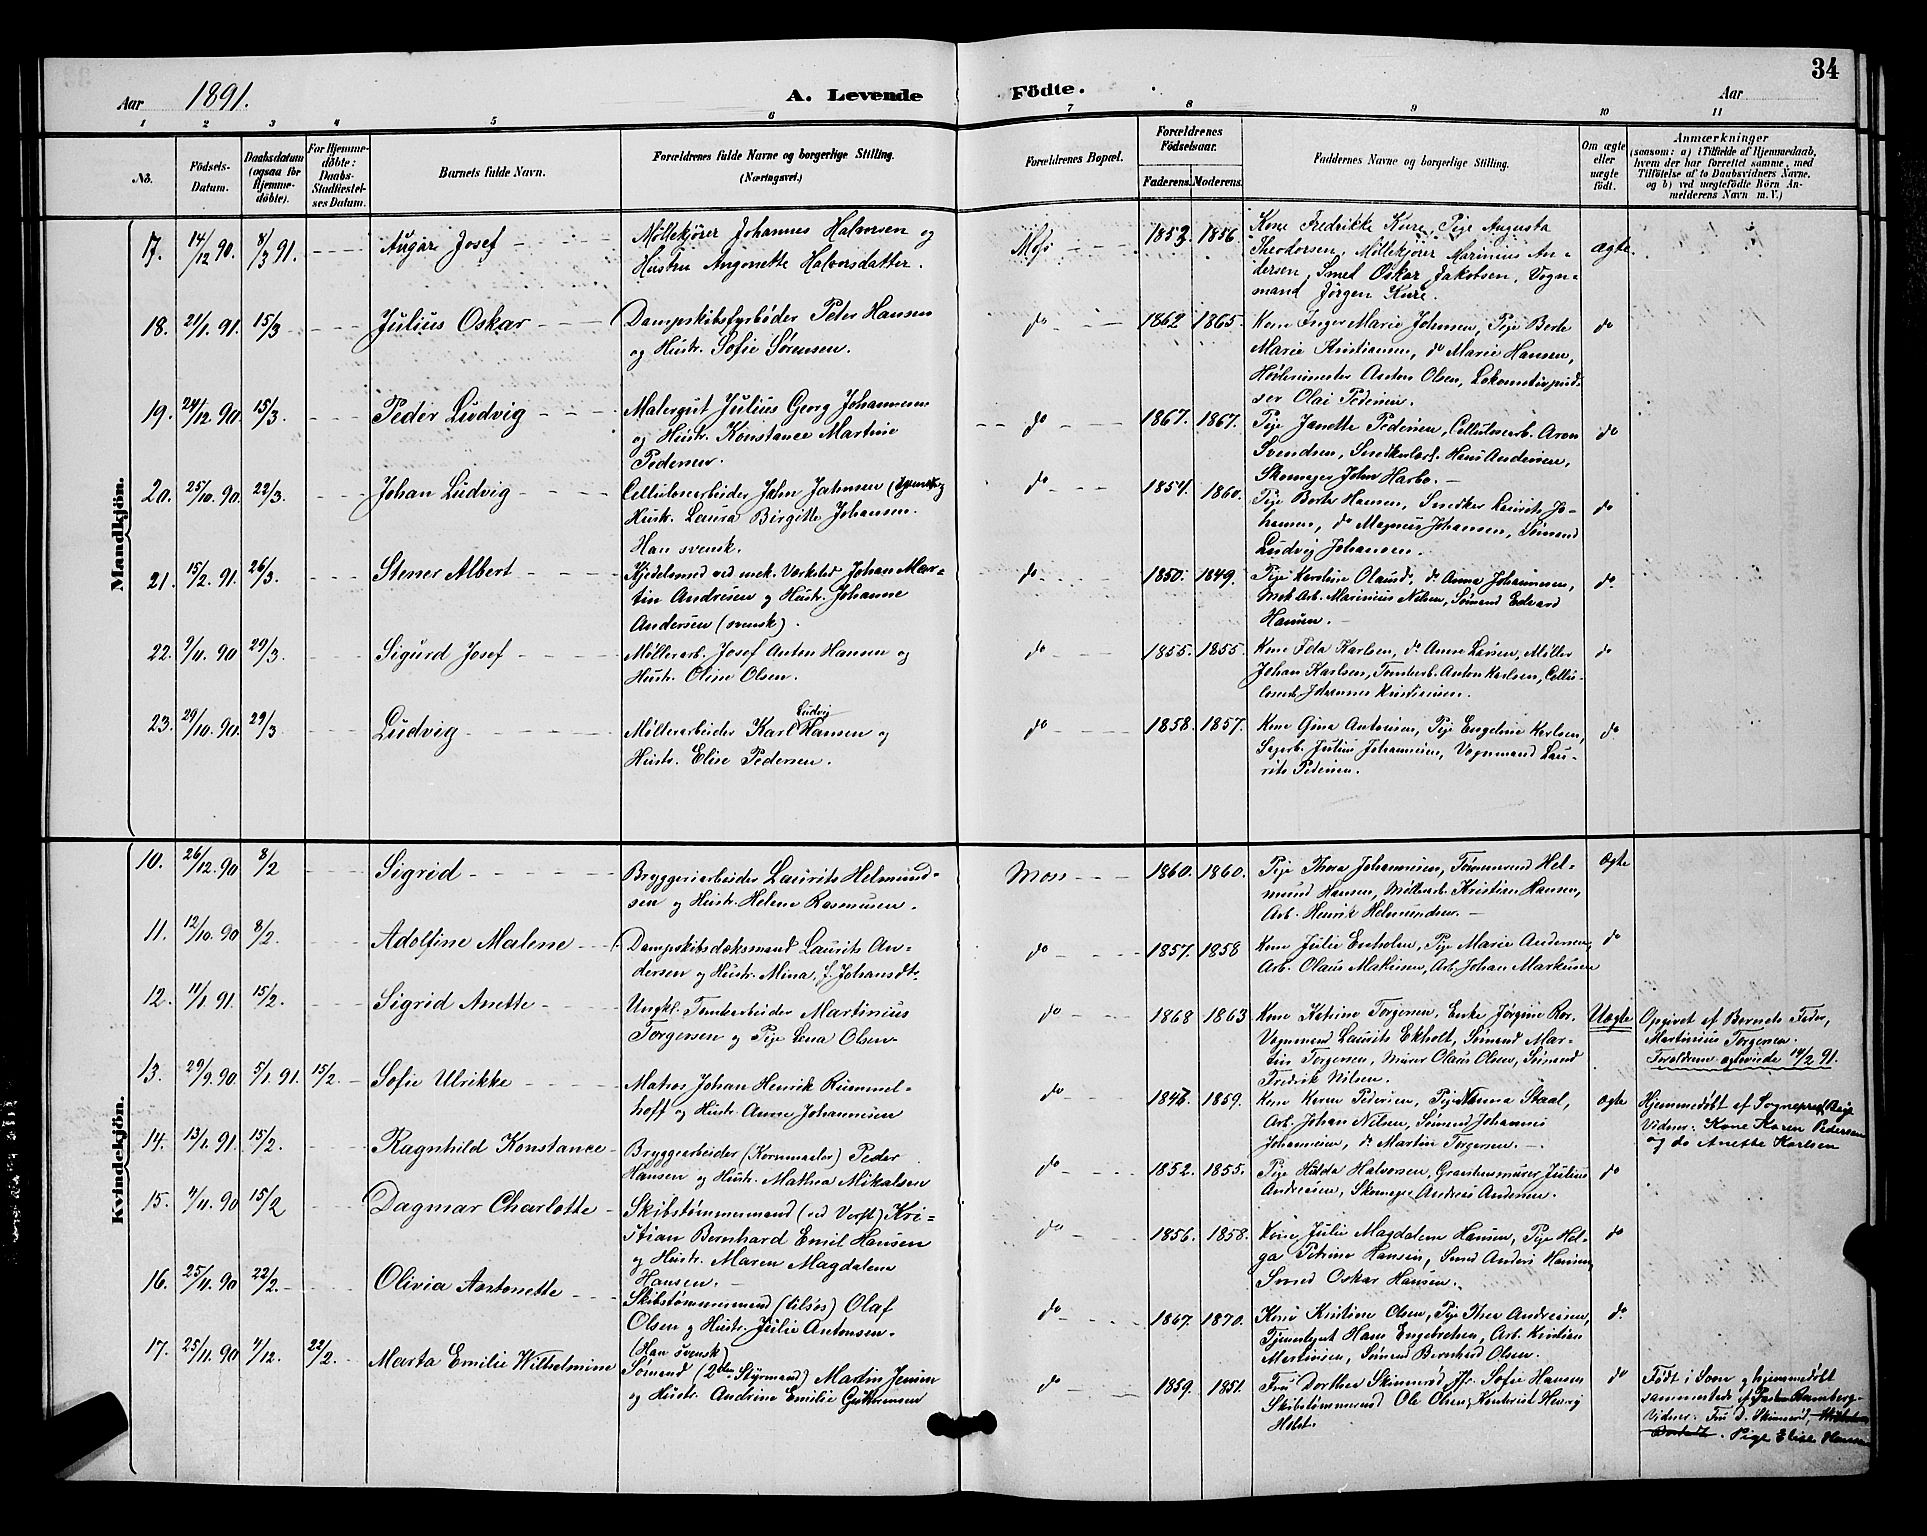 34
Aar 1891.
A. Levende Födte.
Aar
1 2 3 4 5 6 7 8 9 10 11
No.
Födsels-Datum.
Daabsdatum (ogsaa for Hjemme-döbte).
For Hjemme-döbte: Daabs-Stadfæstel-ses Datum.
Barnets fulde Navn.
Forældrenes fulde Navne og borgerlige Stilling.
(Næringsvei.)
Forældrenes Bopæl.
Forældrenes Födselsaar.
Faderens. Moderens.
Faddernes Navne og borgerlige Stilling.
Om ægte eller uægte födt.
Anmærkninger
(saasom: a) i Tilfælde af Hjemmedaab,
hvem der har forrettet samme, med
Tilföielse af to Daabsvidners Navne,
og b) ved uægtefödte Börn An-
melderens Navn m. V.)
Mandkjön.
17. 14/12 90. 8/3 91. Josef
Møllekjører Johannes Halvorsen og
Hustru Angonette Halvorsdatter.
Moss 1852 1856.
Kone Fredrikke Kure, Pige Augusta
Theodorsen, Møllekjører Marinius An-
dersen, Smed Oskar Jakobsen, Vogn-
mand Jörgen Kure.
ægte
18. 21/1. 91. 15/3 Julius Oskar
Dampskibsfyrbøder Peter Hansen
og Hustr. Sofie Sørensen.
do 1862 1865.
Kone Inger Marie Johnsen, Pige Berte
Marie Kristiansen, do Marie Hansen,
Anton Olsen, Lokomotivpud-
ser Olai Pedersen.
do
19. 24/12 90. 15/3. Peder Ludvig
Malergut Julius Georg Johannesen
og Hustr. Konstance Martine
Pedersen.
do 1867. 1867.
Pige Janette Pedersen, Cellulosearb. Aron
Svendsen, Snedkerlærl. Hans Andersen,
Skomager John Harbo.
do
20. 25/10. 90. 22/3. Johan Ludvig
Cellulosearbeider John Johnsen og
Hustr. Laura Birgitte Johansen.
Han svensk.
do 1854. 1860.
Pige Berte Hansen, Snedker Laurits Jo-
hansen, do Magnus Johansen, Sømand
Ludvig Johansen.
do
21. 15/2. 91. 26/3. Stener Albert
Kjedelsmed ved mek. Værksted Johan Mar-
tin Andresen og Hustr. Johanne
Andersen (svensk).
do 1850. 1849.
Pige Karoline Olausd. do Anna Johannesen,
Mek. Arb. Marinius Nilsen, Sømand Edvard
Hansen.
do.
22. 9/11. 90 29/3. Sigurd Josef
Møllerarb. Josef Anton Hansen og
Hustr. Oline Olsen.
do 1855. 1855.
Kone Karlsen, do Anne Larsen, Møller
Johan Karlsen, Tomtearb. Anton Karlsen, Cellu-
losearb. Johannes Kristiansen.
do
23. 29/10. 90. 29/3 Ludvig
Møllerarbeider Karl Ludvig Hansen og
Hustr. Elise Pedersen.
do 1858. 1857.
Kone Gina Antonsen, Pige Engeline Karlsen,
Sagarb. Julius Johannesen, Vognmand Lau-
rits Pedersen.
do.
Kvindekjön.
10. 26/12. 90 8/2 Sigrid
Bryggeriarbeider Laurits Helmund-
sen og Hustr. Helene Rasmusen.
Moss 1860. 1860.
Pige Thora Johannesen, Tømmermd Hel-
mund Hansen, Møllearb. Kristian Hansen,
Arb. Henrik Helmundsen.
Ægte
11. 12/10. 90 8/2. Adolfine Malene
Dampskibsdæksmand Laurits An-
dersen og Hustr. Mina, f. Johansdtr
do 1857. 1858
Kone Julie Enholen, Pige Marie Andersen,
Arb. Olaus Mathisen, Arb. Johan Markusen
do
12. 11/1. 91. 15/2. Sigrid Anette
Ungkl. Tomtearbeider Martinius
Torgersen og Pige Lena Olsen
do 1868 1863
Kone Katrine Torgersen, Enke Jørgine
Vognmand Laurits Ekholt, Sømand Mar-
tin Torgersen, Murer Olaus Olsen, Sømand
Fredrik Nilsen.
Uægte
Opgivet af Barnets Fader,
Martinius Torgersen.
Forældrene ægteviede 14/2 91.
13. 29/9. 90. 5/1. 91. 15/2. Sofie Ulrikke
Matros Johan Henrik Rummel-
hoff og Hustr. Anne Johannesen
do 1846. 1859.
Kone Karen Pedersen, Pige Nanna Staal,
Arb. Johan Nilsen, Sømand Johannes
Johannesen, do Martin Torgersen.
ægte
Hjemmedøbt af Sognepræst
Vidner: Kone Karen Pedersen
og do Anette Karlsen
14. 13/1. 91. 15/2. Ragnhild Konstance
Bryggearbeider (Kornmaaler) Peder
Hansen og Hustr. Mathea Mikalsen
do 1852. 1855.
Pige Hulda Halvorsen, Graastensmurer Julius
Andresen, Skomager Andreas Andersen.
do
15. 4/11. 90 15/2 Dagmar Charlotte
Skibstømmermand (ved Verft) Kri-
stian Bernhard Emil Hansen
og Hustr. Maren Magdalene
Hansen.
do 1856. 1858.
Kone Julie Magdalene Hansen, Pige Hel-
ga Petrine Hansen, Smed Anders Hansen,
Smed Oskar Hansen.
do
16. 25/11. 90 22/2. Olivia Antonette
Skibstømmermand (tilsøs) Olaf
Olsen og Hustr. Julie Antonsen.
(Han svensk)
do 1867. 1870.
Kone Kristine Olsen, Pige Thea Andresen,
Tjenestgut Hans Engebretsen, Arb. Kristian
Martinsen, Sømand Bernhard Olsen.
do.
17. 25/11. 90 7/12. 22/2. Marta Emilie Wilhelmine
Sømand (2den Styrmand) Martin Jensen
og Hustr. Andrine Emilie Guttormsen
do 1859. 1851.
Fru Dorthea Skinnerød, Sofie Hansen
Skibstømmermand Ole Olsen, Kontorist Henrij
Holst.
do
Født i Soon og hjemmedøbt
sammesteds af Ramberg.
Vidner: Fru D. Skinnerød,
Pige Elise Hansen